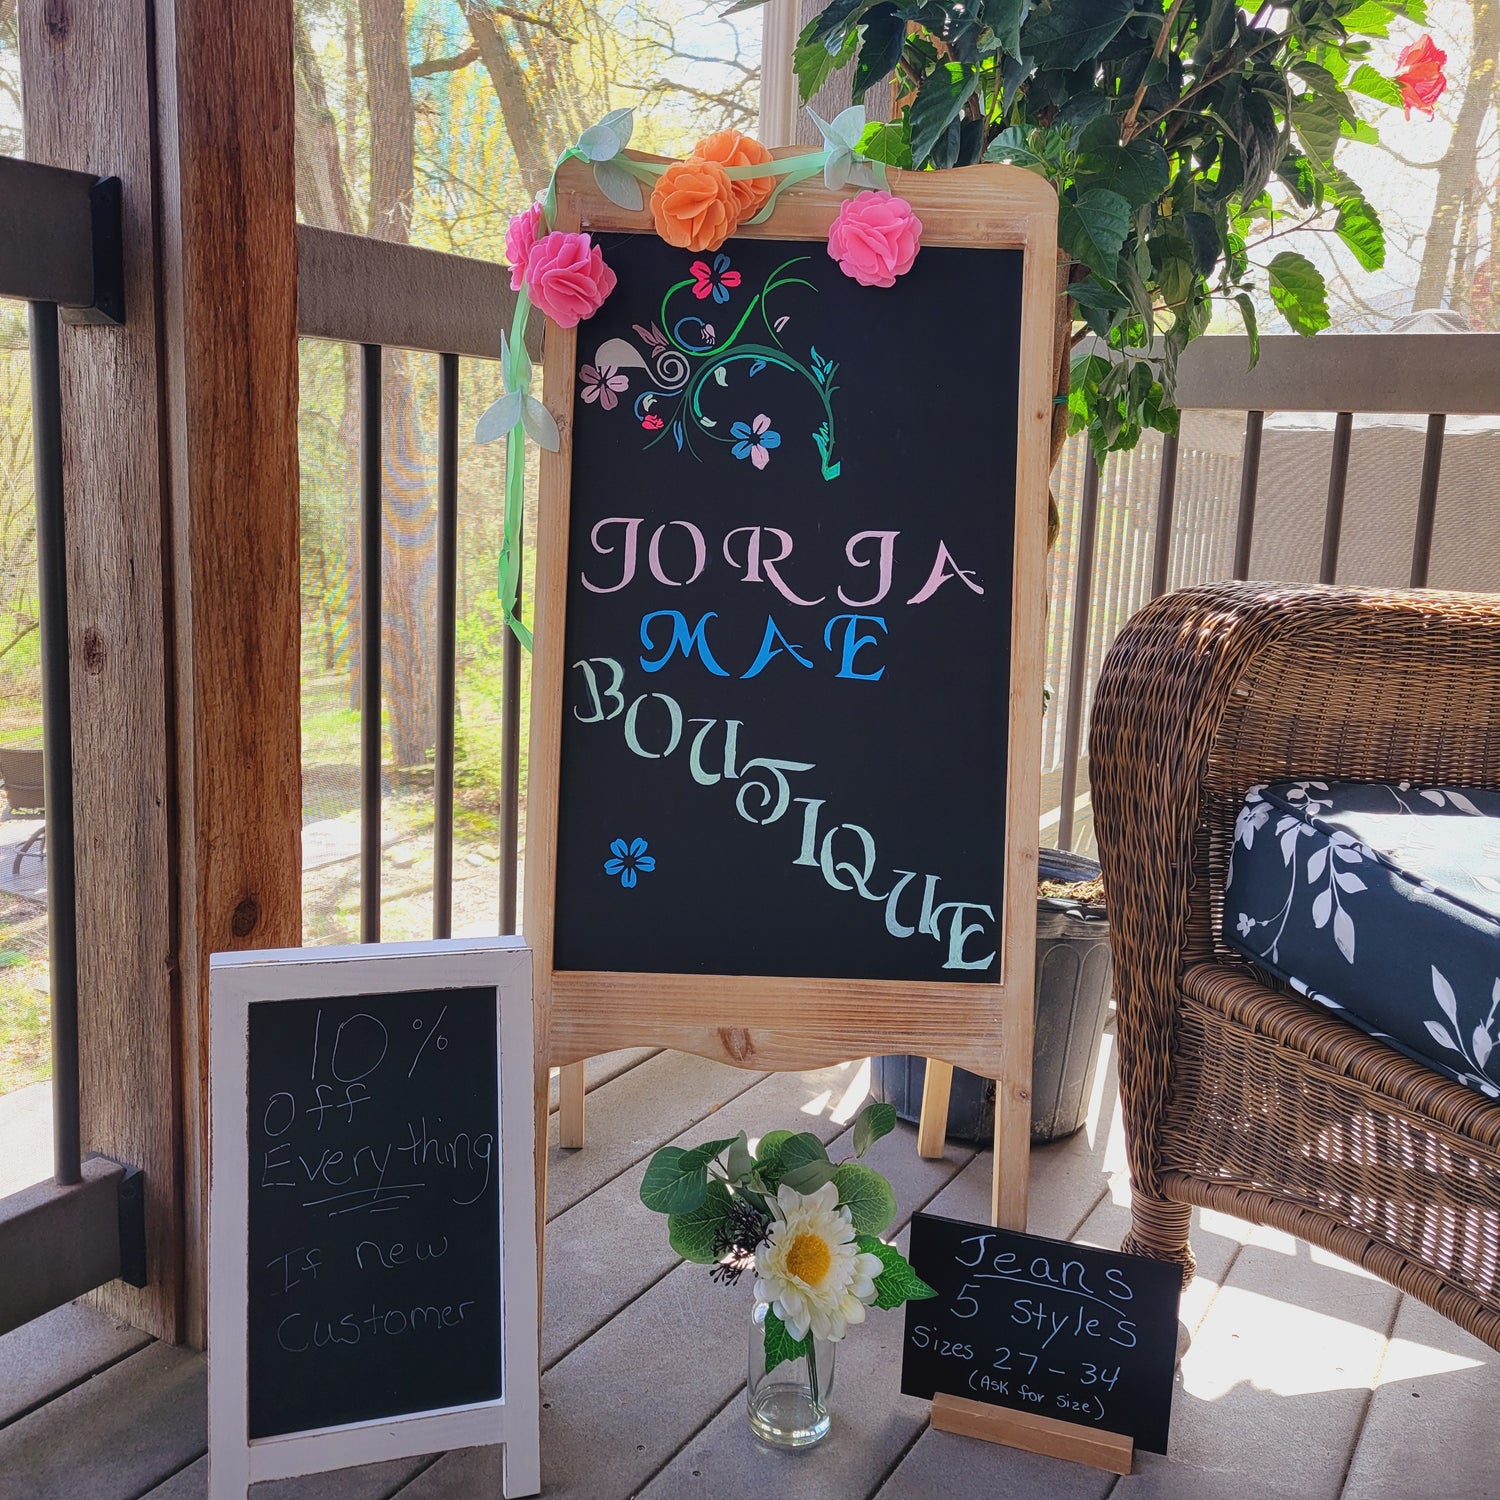 JORJA
MAE
BOUTIQUE
10%
Off
Everything
If new
Customer
Jeans
5 styles
Sizes 27-34
(Ask for size)